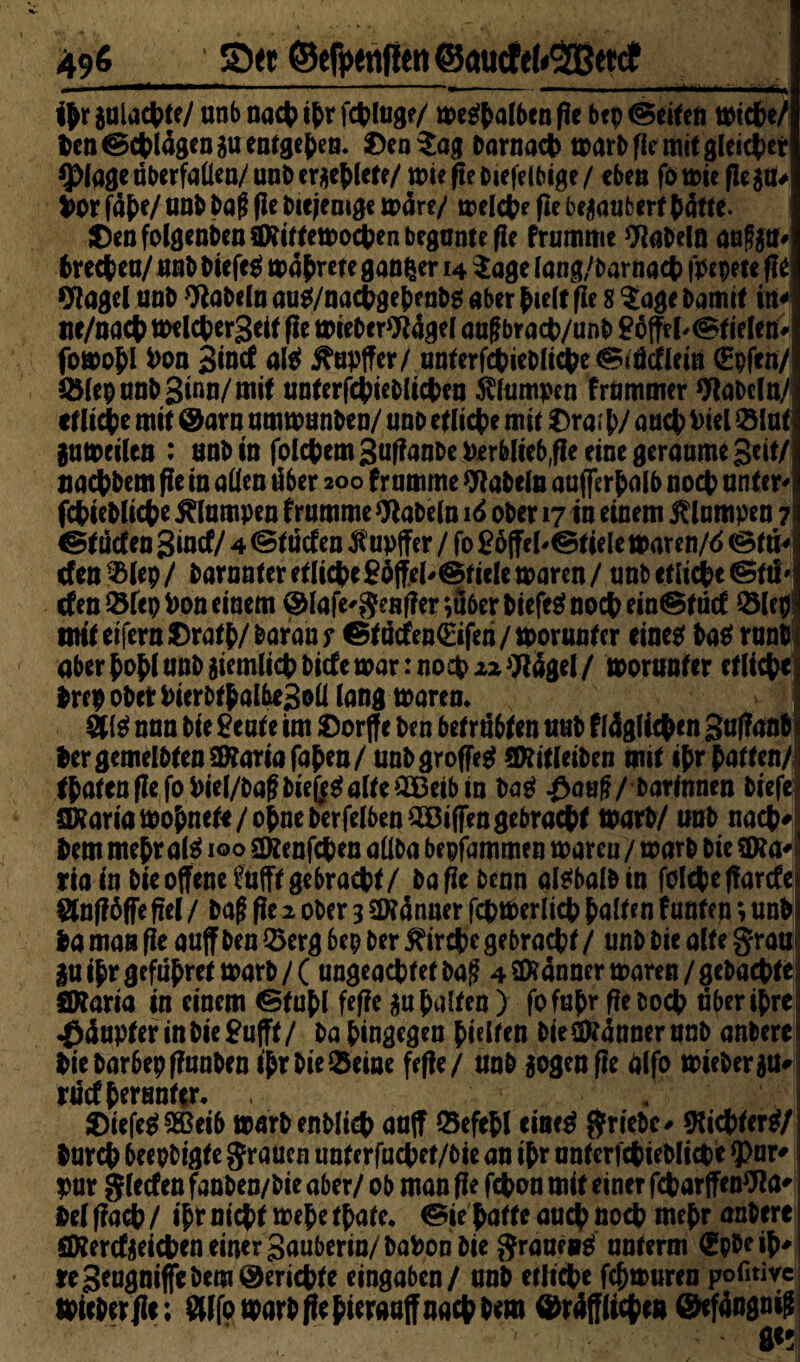 496 Der Gespenster Gauckel-Werck
ihr zulachte/ und nach ihr schluge/ weßhalben sie bey Seiten wiche/
den Schlägen zu entgehen. Den Tag darnach ward sie mit gleicher
Plage überfallen/ und erzehlete/ wie sie dieselbige/ eben so wie sie zu-
vor sähe/ und daß sie diejenige wäre/ welche sie bezaubert hätte.
Den folgenden Mittewochen begunte sie krumme Nadeln außzu-
brechen/ und dieses währete gantzer 14 Tage lang/ darnach speyete sie
Nagel und Nadeln aus/ nachgehends aber hielt sie 8 Tage damit in-
ne/ nach welcher Zeit sie wieder Nägel außbrach/ und Löffel-Stielen-
sowohl von Zinck als Kupffer/ unterschiedliche Stücklein Eysen/
Bley und Zinn/ mit unterschieblichen Klumpen krummer Nadeln/
etliche mit Garn umwunden/ und etliche mit Drath/ auch viel Blut
zuweilen : und in solchem Zustande verblieb sie eine geraume Zeit/
nachdem sie in allen über 200 krumme Nadeln ausserhalb noch unter-
schiedliche Klumpen krumme Nadeln 16 oder 17 in einem Klumpen 7
Stücken Zinck/ 4 Stücken Kupffer / so Löffel-Stiele waren/ 6 Stü-
cken Bley / darunter etliche Löffel-Stiele waren / und etliche Stü-
cken Bley von einem Glase-Fenster ; über dieses noch ein Stück Bley
mit eisern Drath/ daran 5 Stücken Eisen / worunter eines das rund
aber hohl und ziemlich dicke war: noch 22 Nägel / worunter etliche
drey oder vierdthalbe Zoll lang waren.
Als nun die Leute im Dorffe den betrübten und kläglichen Zustand
der gemeldten Maria sahen / und grosses Mitleiden mit ihr hatten/
thaten sie so viel/ daß dieses alte Weib in das Hauß / darinnen diese
Maria wohnete / ohne derselben Wissen gebracht ward/ und nach-
dem mehr als 100 Menschen allda beysammen waren / ward die Ma-
ria in die offene Lufft gebracht / da sie denn alsbald in solche starcke
Anstösse fiel / daß sie 2 oder 3 Männer schwerlich halten kunten ; und
da man sie auff den Berg bey der Kirche gebracht / und die alte Frau
zu ihr geführet ward / ( ungeachtet daß 4 Männer waren / gedachte
Maria in einem Stuhl feste zu halten ) so fuhr sie doch über ihre
Häupter in die Lufft / da hingegen hielten die Männer und andere
die darbey stunden ihr die Beine feste / und zogen sie also wieder zu-
rück herunter.
Dieses Weib ward endlich auff Befehl eines Friede- Richters/
durch beeydigte Frauen untersuchet/ die an ihr unterschiedliche Pur-
pur Flecken fanden/ die aber/ ob man sie schon mit einer scharffen Na-
del stach / ihr nicht wehe thate. Sie hatte auch noch mehr andere
Merckzeichen einer Zauberin/ davon die Frauens unterm Eyde ih-
re Zeugnisse dem Gerichte eingaben / und etliche schwuren positive
wieder sie; Also ward sie hierauff nach dem Gräfflichen Gefängniß
ge-